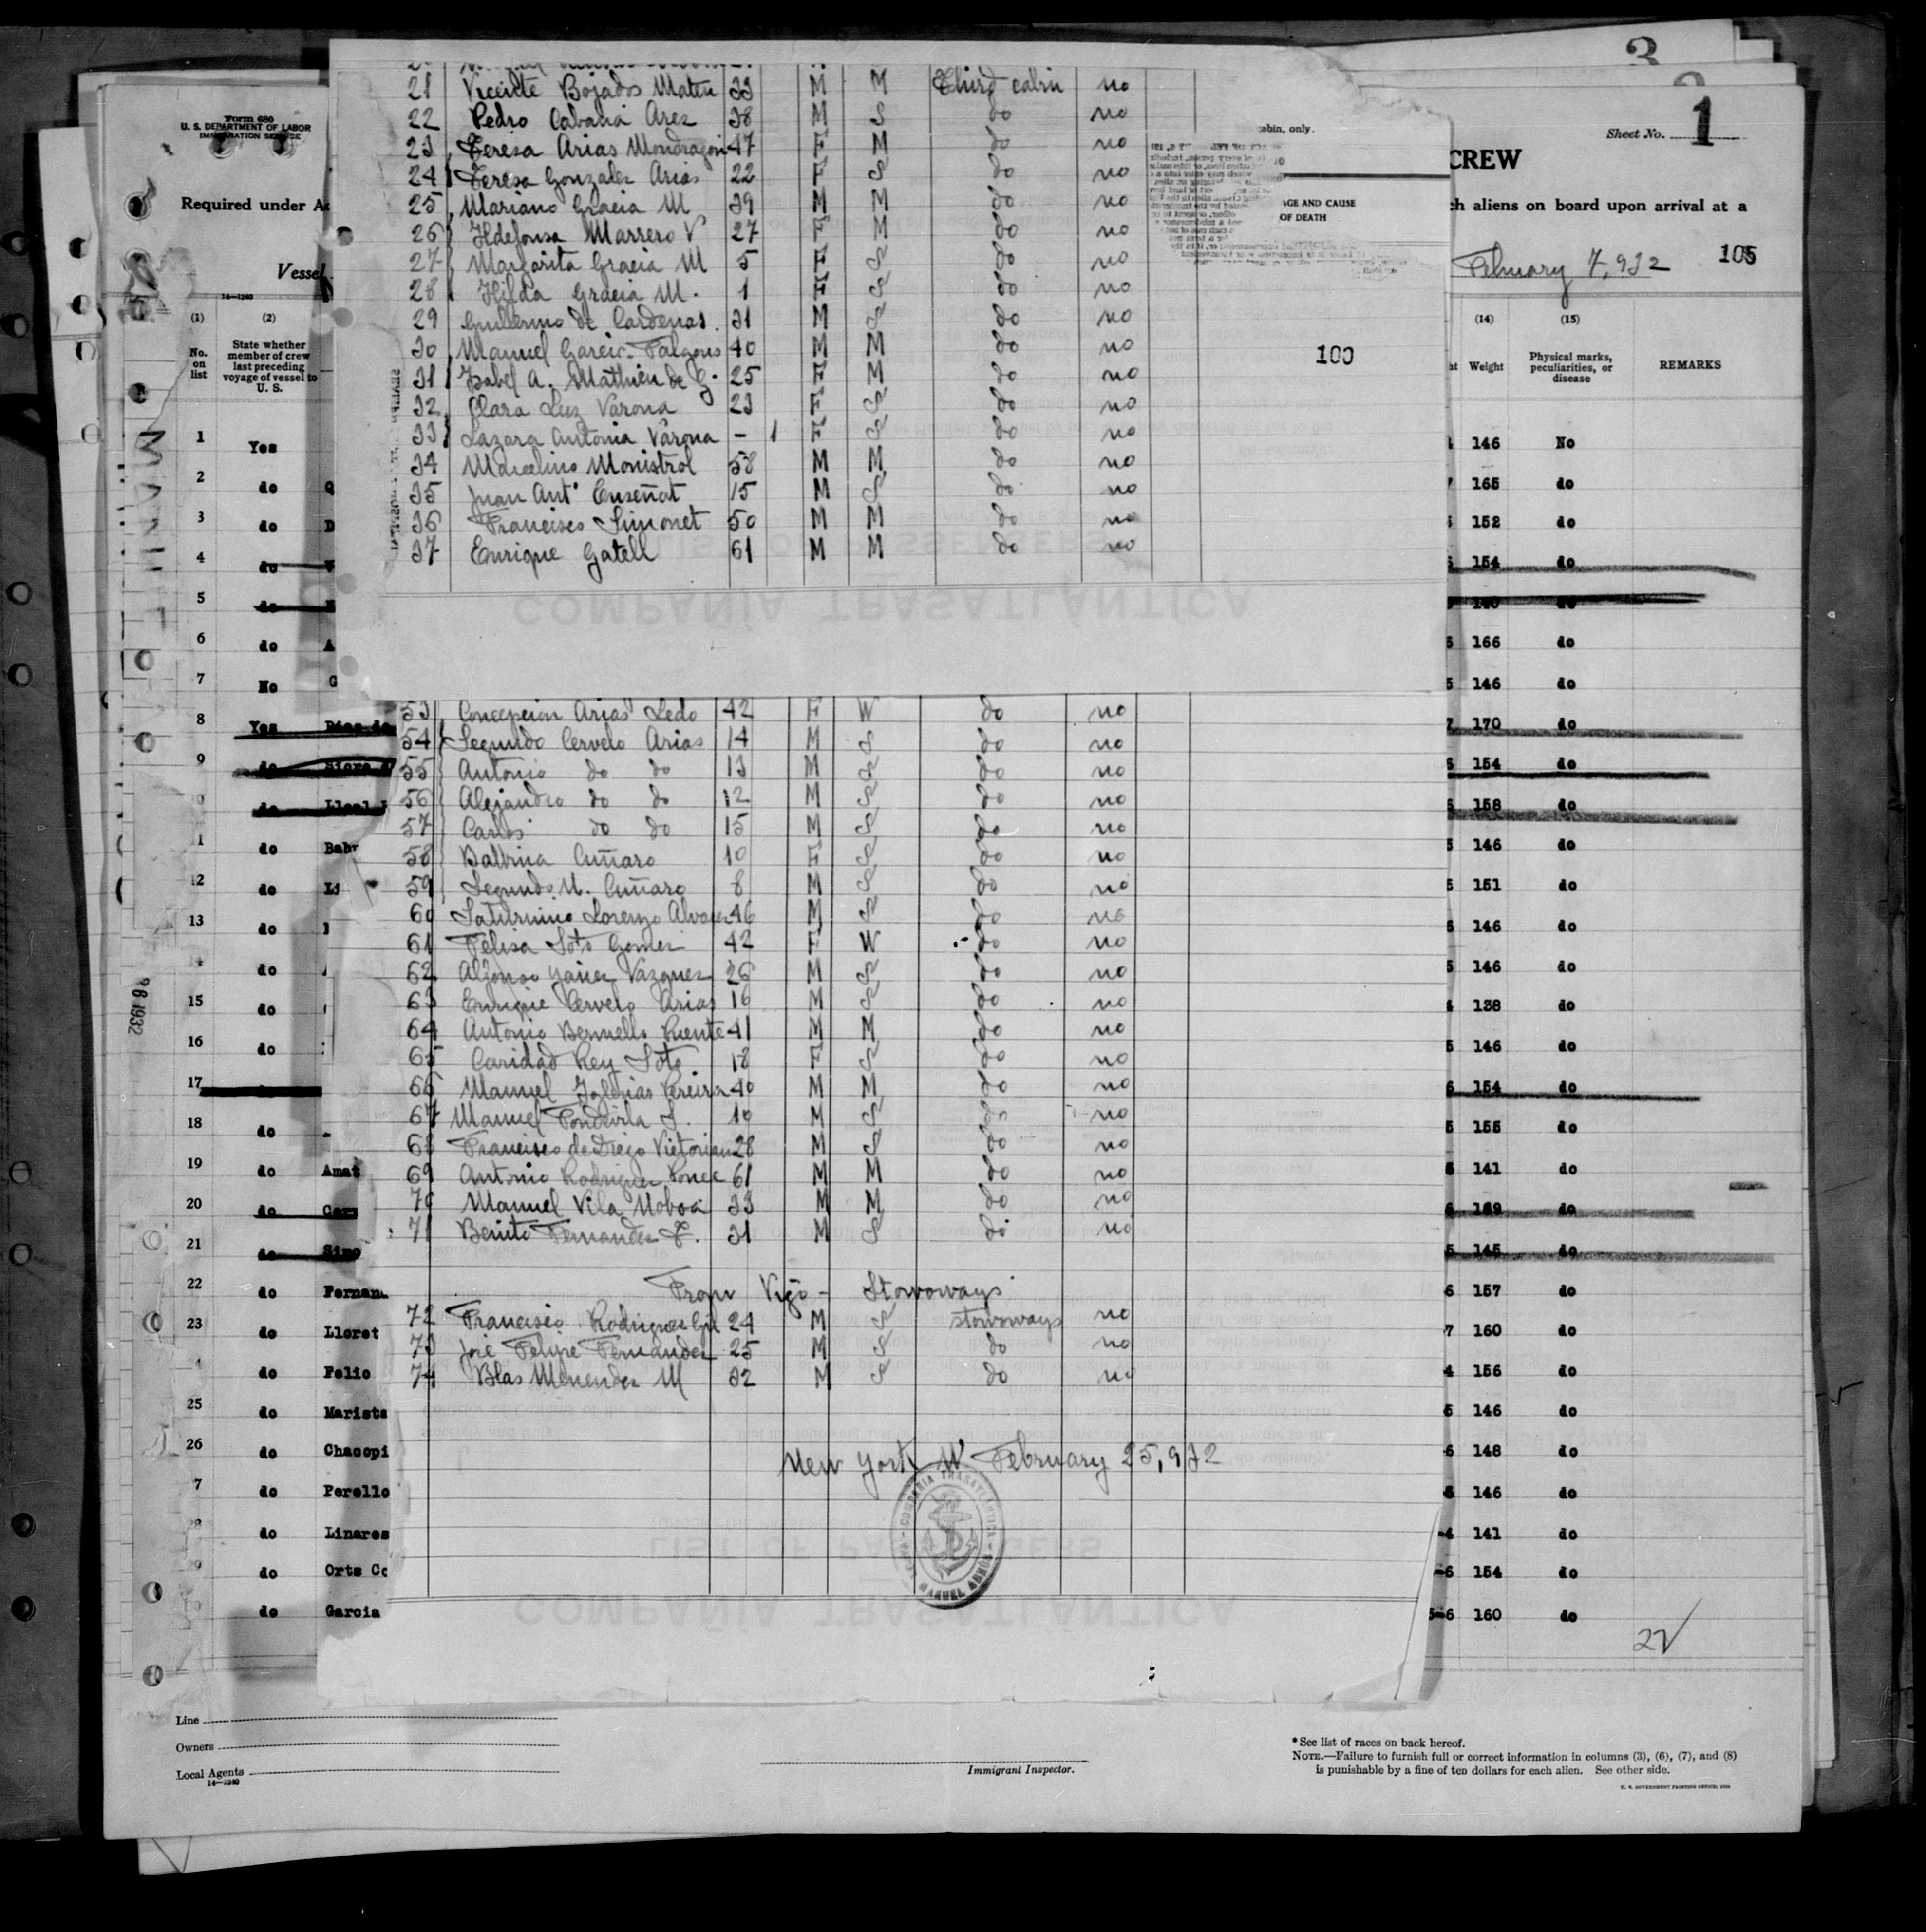 3
Form 680
U. S. DEPARTMENT OF LABOR
IMMIGRATION SERVICE
Required under A
Vessel
14—1240
(1) (2)
No. on list
State whether member of crew last preceding voyage of vessel to U. S.
Sheet No. 1
CREW
ch aliens on board upon arrival at a
February 7, 932 105
(14) (15)
Weight
Physical marks, peculiarities, or disease
REMARKS
abin, only.
AGE AND CAUSE
OF DEATH
100
21 Vicente Bojados Mateu 33 M M Third cabin no
22 Pedro Cabana Ares 38 M S do no
23 Teresa Arias Mondragon 47 F M do no
24 Teresa Gonzalez Arias 22 F S do no
25 Mariano Gracia M 39 M M do no
26 Ildefonsa Marrero V 27 F M do no
27 Margarita Gracia M 5 F S do no
28 Hilda Gracia M. 1 F S do no
29 Guillermo de Cardenas. 31 M S do no
30 Manuel Garcia Falgons 40 M M do no
31 Isabel A. Mathieu de G. 25 F M do no
32 Clara Luz Varona 23 F S do no
33 Lazara Antonia Varona – 1 F S do no
34 Marcelino Monistrol 58 M M do no
35 Juan Antº Enseñat 15 M S do no
36 Francisco Simonet 50 M M do no
37 Enrique Gatell 61 M M do no
COMPAÑÍA TRASATLÁNTICA
53 Concepcion Arias Ledo 42 F W do no
54 Segundo Cervelo Arias 14 M S do no
55 Antonio do do 13 M S do no
56 Alejandro do do 12 M S do no
57 Carlos do do 15 M S do no
58 Balbina Cuñaro 10 F S do no
59 Segundo M. Cuñaro 8 M S do no
60 Saturnino Lorenzo Alvarez 46 M S do no
61 Felisa Soto Gomez 42 F W do no
62 Alfonso Yañez Vazquez 26 M S do no
63 Enrique Cervelo Arias 16 M S do no
64 Antonio Bermello Puente 41 M M do no
65 Caridad Rey Soto 18 F S do no
66 Manuel Iglesias Pereira 40 M M do no
67 Manuel Fondevila S. 10 M S do no
68 Francisco de Diego Victoriano 28 M S do no
69 Antonio Rodriguez Ponce 61 M M do no
70 Manuel Vila Noboa 33 M M do no
71 Benito Fernandez F. 31 M S do no
From Vigo – Stowoways
72 Francisco Rodriguez Gil 24 M S stowoways no
73 José Felipe Fernandez 25 M S do no
74 Blas Menendez M 32 M S do no
New York, N February 25, 932
COMPAÑIA TRASATLANTICA
MANUEL ARNUS
LIST OF PASSENGERS
COMPAÑÍA TRASATLÁNTICA
1 Yes
2 do
3 do
4 do
5 do
6 do A
7 No G
8 Yes
9 do
do
1 do
12 do
13 do
do
15 do
16 do
17
18 do
19 do Amat
20 do
21 do Simo
22 do Fernan
23 do Lloret
4 do Felio
25 do Marista
26 do Chacopi
7 do Perello
28 do Linares
9 do Orts Co
do Garcia
146 No
165 do
152 do
154 do
140 do
166 do
146 do
170 do
154 do
158 do
146 do
151 do
146 do
146 do
138 do
146 do
154 do
155 do
141 do
do
145 do
157 do
160 do
156 do
146 do
148 do
146 do
141 do
154 do
160 do
22
Line
Owners
Local Agents
14—1240
Immigrant Inspector.
*See list of races on back hereof.
NOTE.—Failure to furnish full or correct information in columns (3), (6), (7), and (8)
is punishable by a fine of ten dollars for each alien. See other side.
U. S. GOVERNMENT PRINTING OFFICE: